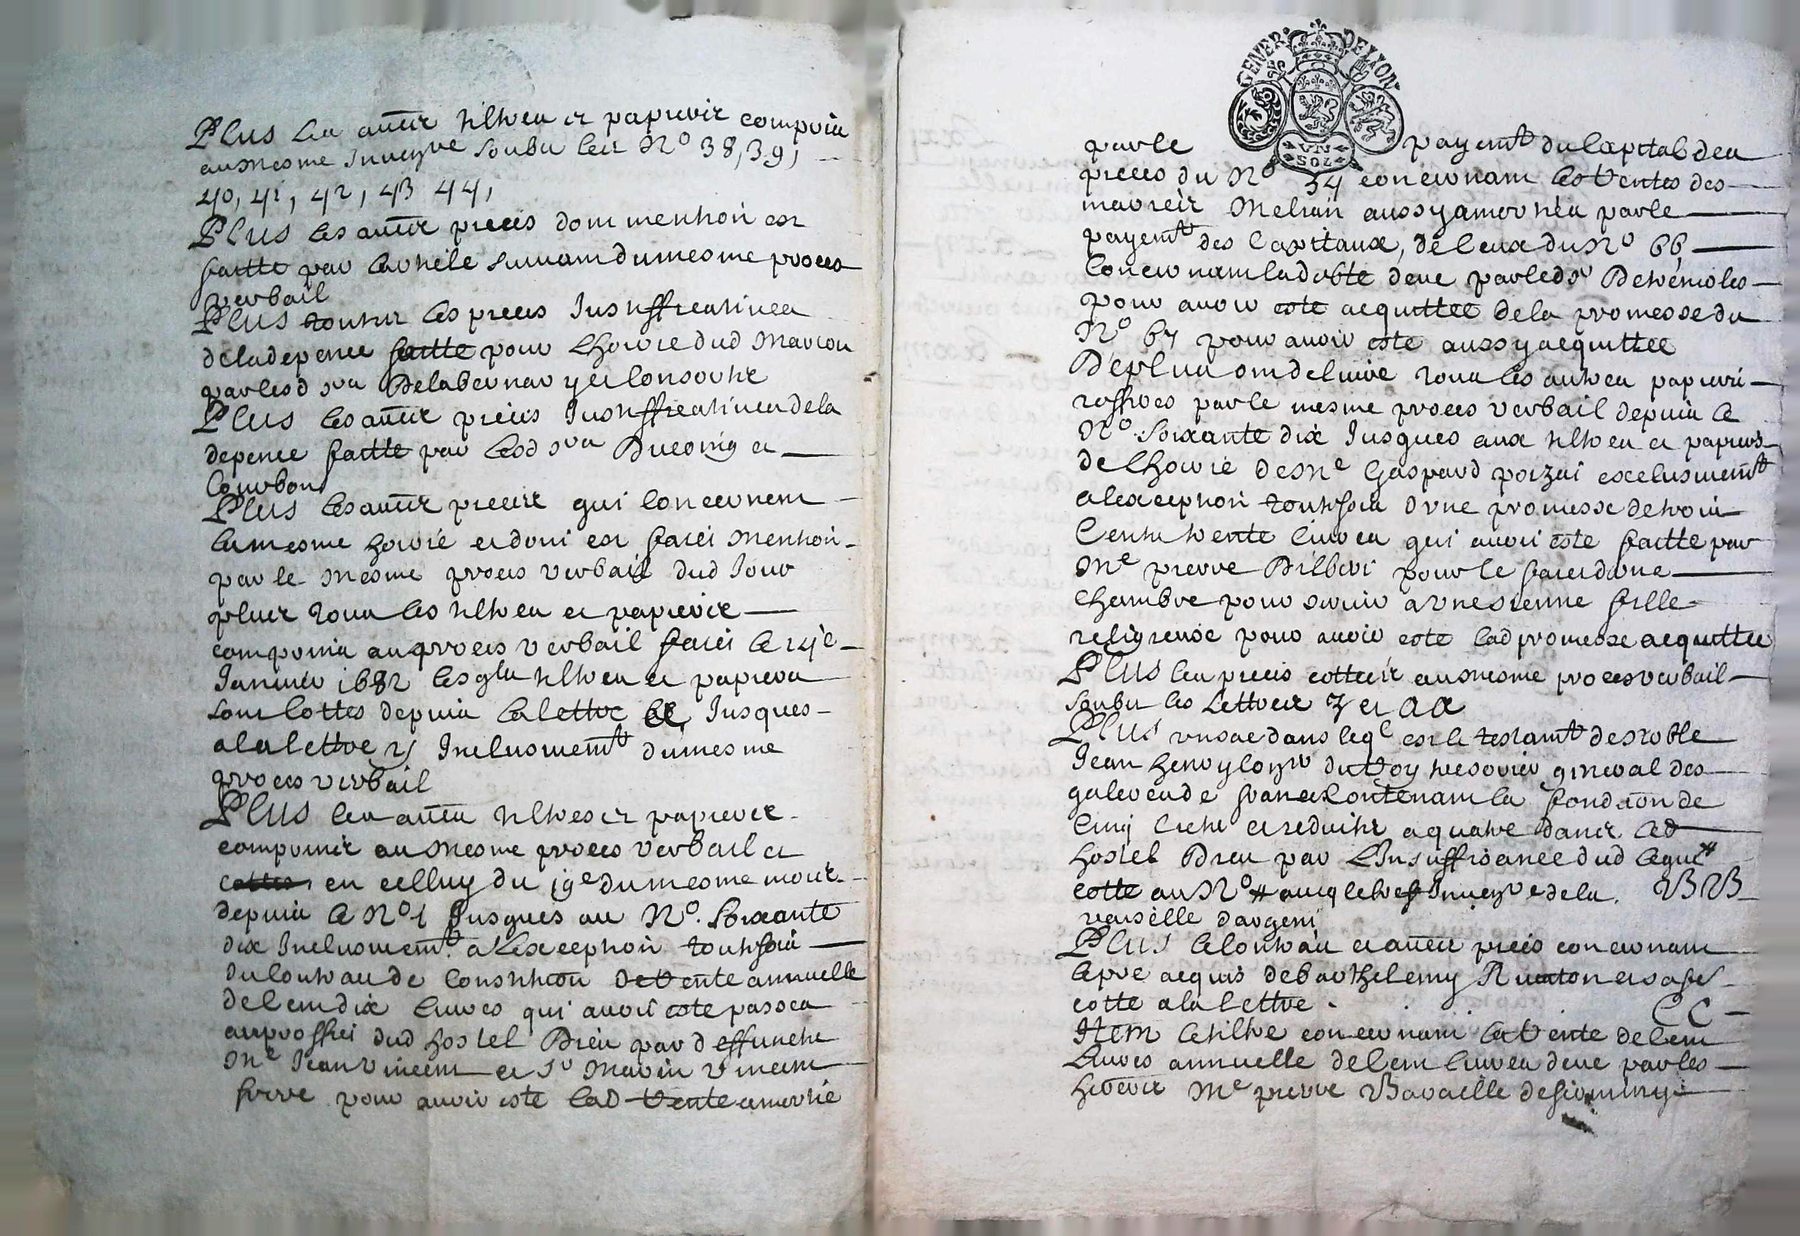 Plus les autres tiltres et papiers compris
au mesme Inventre soubz les No 38, 39,
40, 41, 42, 43 44,
Plus les autres pieces dont mention est
faitte par larticle suivant du mesme proces
verbail
Plus touttes les pieces Justifficatives
de la depence faitte pour Lhoirie dud Marcou
par lesd srs Delabernary et Consortz
Plus les autres pieces Justifficatives de la
depence faitte par Lesd srs Ducoing et
Courbon
Plus les autres pieces qui concernent
la mesme hoirie et dont est faict mention
par le mesme proces verbail dud Jour
plus tous les tiltres et papiers
compris au proces verbail faict le 14e
Janvier 1682 lesqls tiltres et papiers
sont Cottes depuis la lettre Jusques
a la lettre y Inclusivemt du mesme
proces verbail
Plus les autres tiltres et papiers
compris au mesme proces verbail et
en celluy du 19e du mesme mois
depuis le No 1 Jusques au No. Soixante
dix Inclusivemt. a lexception touttefois
du contrau de Constitution de rente annuelle
de cent dix livres qui avoit este passea
au proffict dud hostel Dieu par deffunctz
Me Jean Vincent et Sr Marcin Vincent
frere pour avoir este Lad rente amortie
par le payemt du Capital des
GENER. DE LYON
VN
SOL
pieces du No 54 concernant les ventes des
maries Melian aussy amorties par le
payemt des Capitaux, de Ceux du No 66,
Concernant la debte deue par led sr Detremoles
pour avoir este acquittee de la promesse du
No 67 pour avoir este aussy acquittee
Deplus ont delivre tous les autres papiers
par le mesme proces verbail depuis le
No. Soixante dix Jusques aux tiltres et papiers
de Lhoirie de Me Gaspard poizat exclusivemt
a lexception touttefois dune promesse de trois
Cents trente livres qui avoit este faitte par
Me pierre Dilbert pour le faict dune
chambre pour servir a une sienne fille
religieuse pour avoir este Lad promesse acquittee
Plus les pieces cottees au mesme proces verbail
soubz les Lettres Z et AA
Plus un sac dans leql est le testamt de noble
Jean henry Conr du Roy tresorier general des
galeres de france Contenant la fondaon de
Cinq Lictz et reduitz a quatre dans Led
hostel Dieu par L'Insuffisance dud legue
cotte au No # auquel est Inventre de la. BB
vaiselle dargent
Plus le contrau et autres pieces concernant
le pre acquis de barthelemy Ruaton et sa fe
cotte a la lettre . CC
Item le tiltre concernant la rente de Cent
Livres annuelle de Cent livres deue par les
hoirs Me pierre Bavaille de